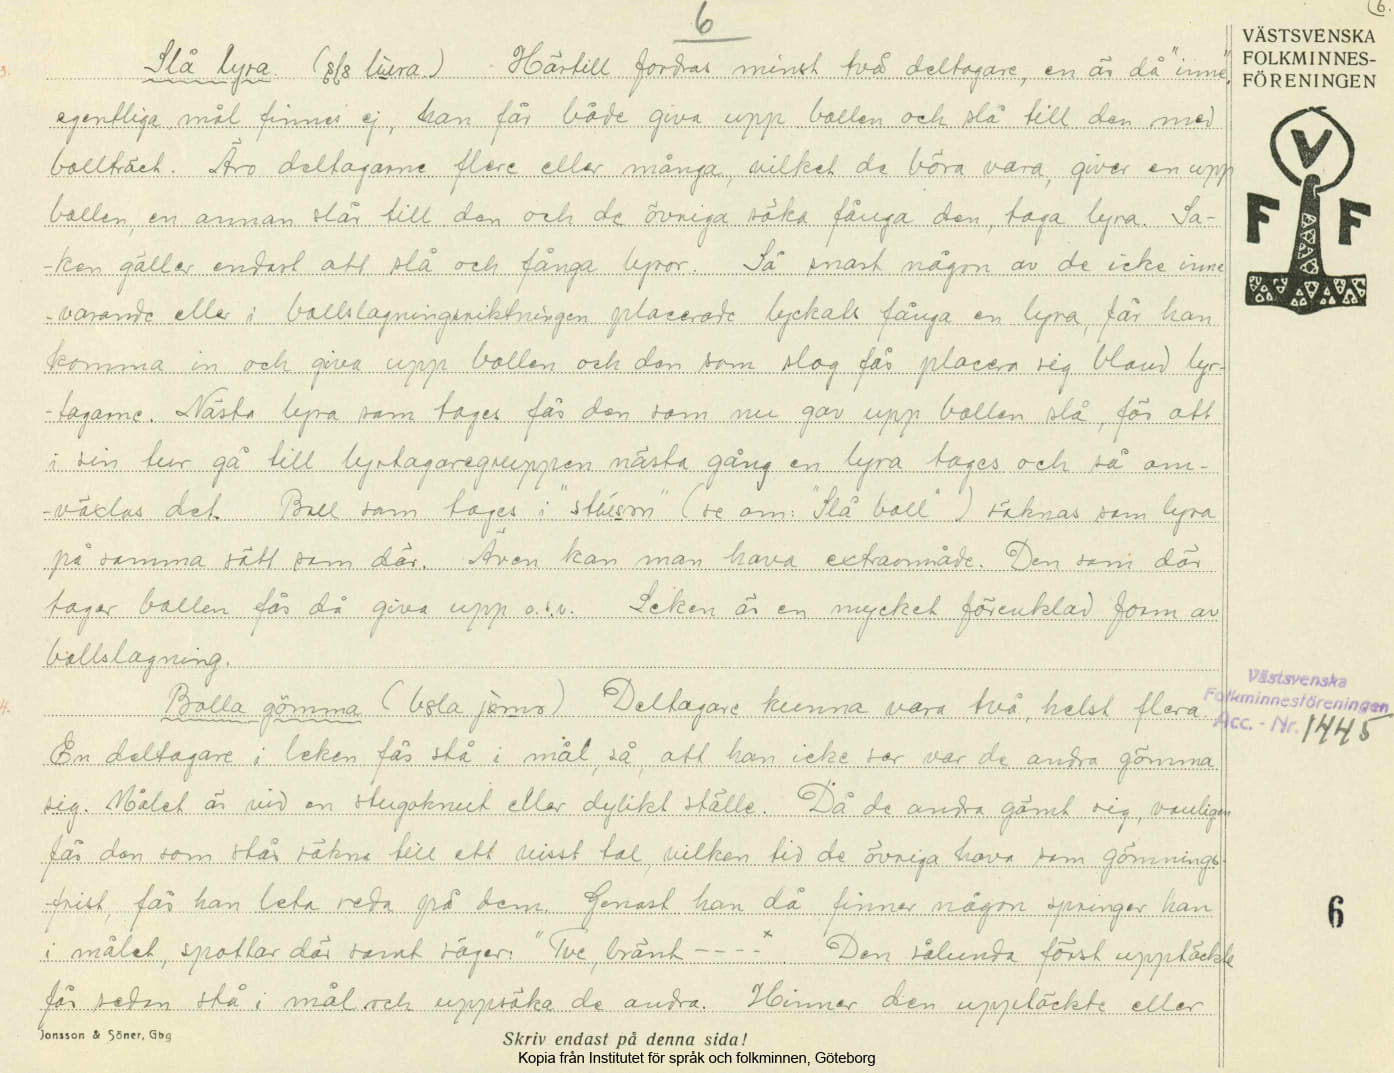 6
(6.
VÄSTSVENSKA
FOLKMINNES-
FÖRENINGEN
V
F F
3.
Slå lyra. ( lūera.) Härtill fordras minst två deltagare, en är då "inne",
egentliga mål finnes ej, han får både giva upp bollen och slå till den med
bollträet. Äro deltagarne flere eller många, vilket de böra vara, giver en upp
bollen, en annan slår till den och de övriga söka fånga den, taga lyra. Sa-
-ken gäller endast att slå och fånga lyror. Så snart någon av de icke inne
-varande eller i bollslagningsriktningen placerade lyckats fånga en lyra, får han
komma in och giva upp bollen och den som slog får placera sig bland lyr-
-tagarne. Nästa lyra som tages får den som nu gav upp bollen slå, för att
i sin tur gå till lyrtagaregruppen nästa gång en lyra tages och så om-
-växlas det. Boll som tages i "stúson" (se om: "Slå boll") räknas som lyra
på samma sätt som där. Även kan man hava extraområde. Den som där
tager bollen får då giva upp o.s.v. Leken är en mycket förenklad form av
bollslagning.
4.
Bolla gömma ( ) Deltagare kunna vara två, helst flera
En deltagare i leken får stå i mål, så, att han icke ser var de andra gömma
sig. Målet är vid en stugoknut eller dylikt ställe. Då de andra gömt sig, vanligen
får den som står räkna till ett visst tal, vilken tid de övriga hava som gömnings-
-frist, får han leta reda på dem. Genast han då finner någon springer han
i målet, spottar där samt säger: "Tve, bränt ----"* . Den sålunda först upptäckte
får sedan stå i mål och uppsöka de andra. Hinner den upptäckte eller
Västsvenska
Folkminnesföreningen
Acc. - Nr. 1445
6
Jonsson & Söner, Gbg
Skriv endast på denna sida!
Kopia från Institutet för språk och folkminnen, Göteborg